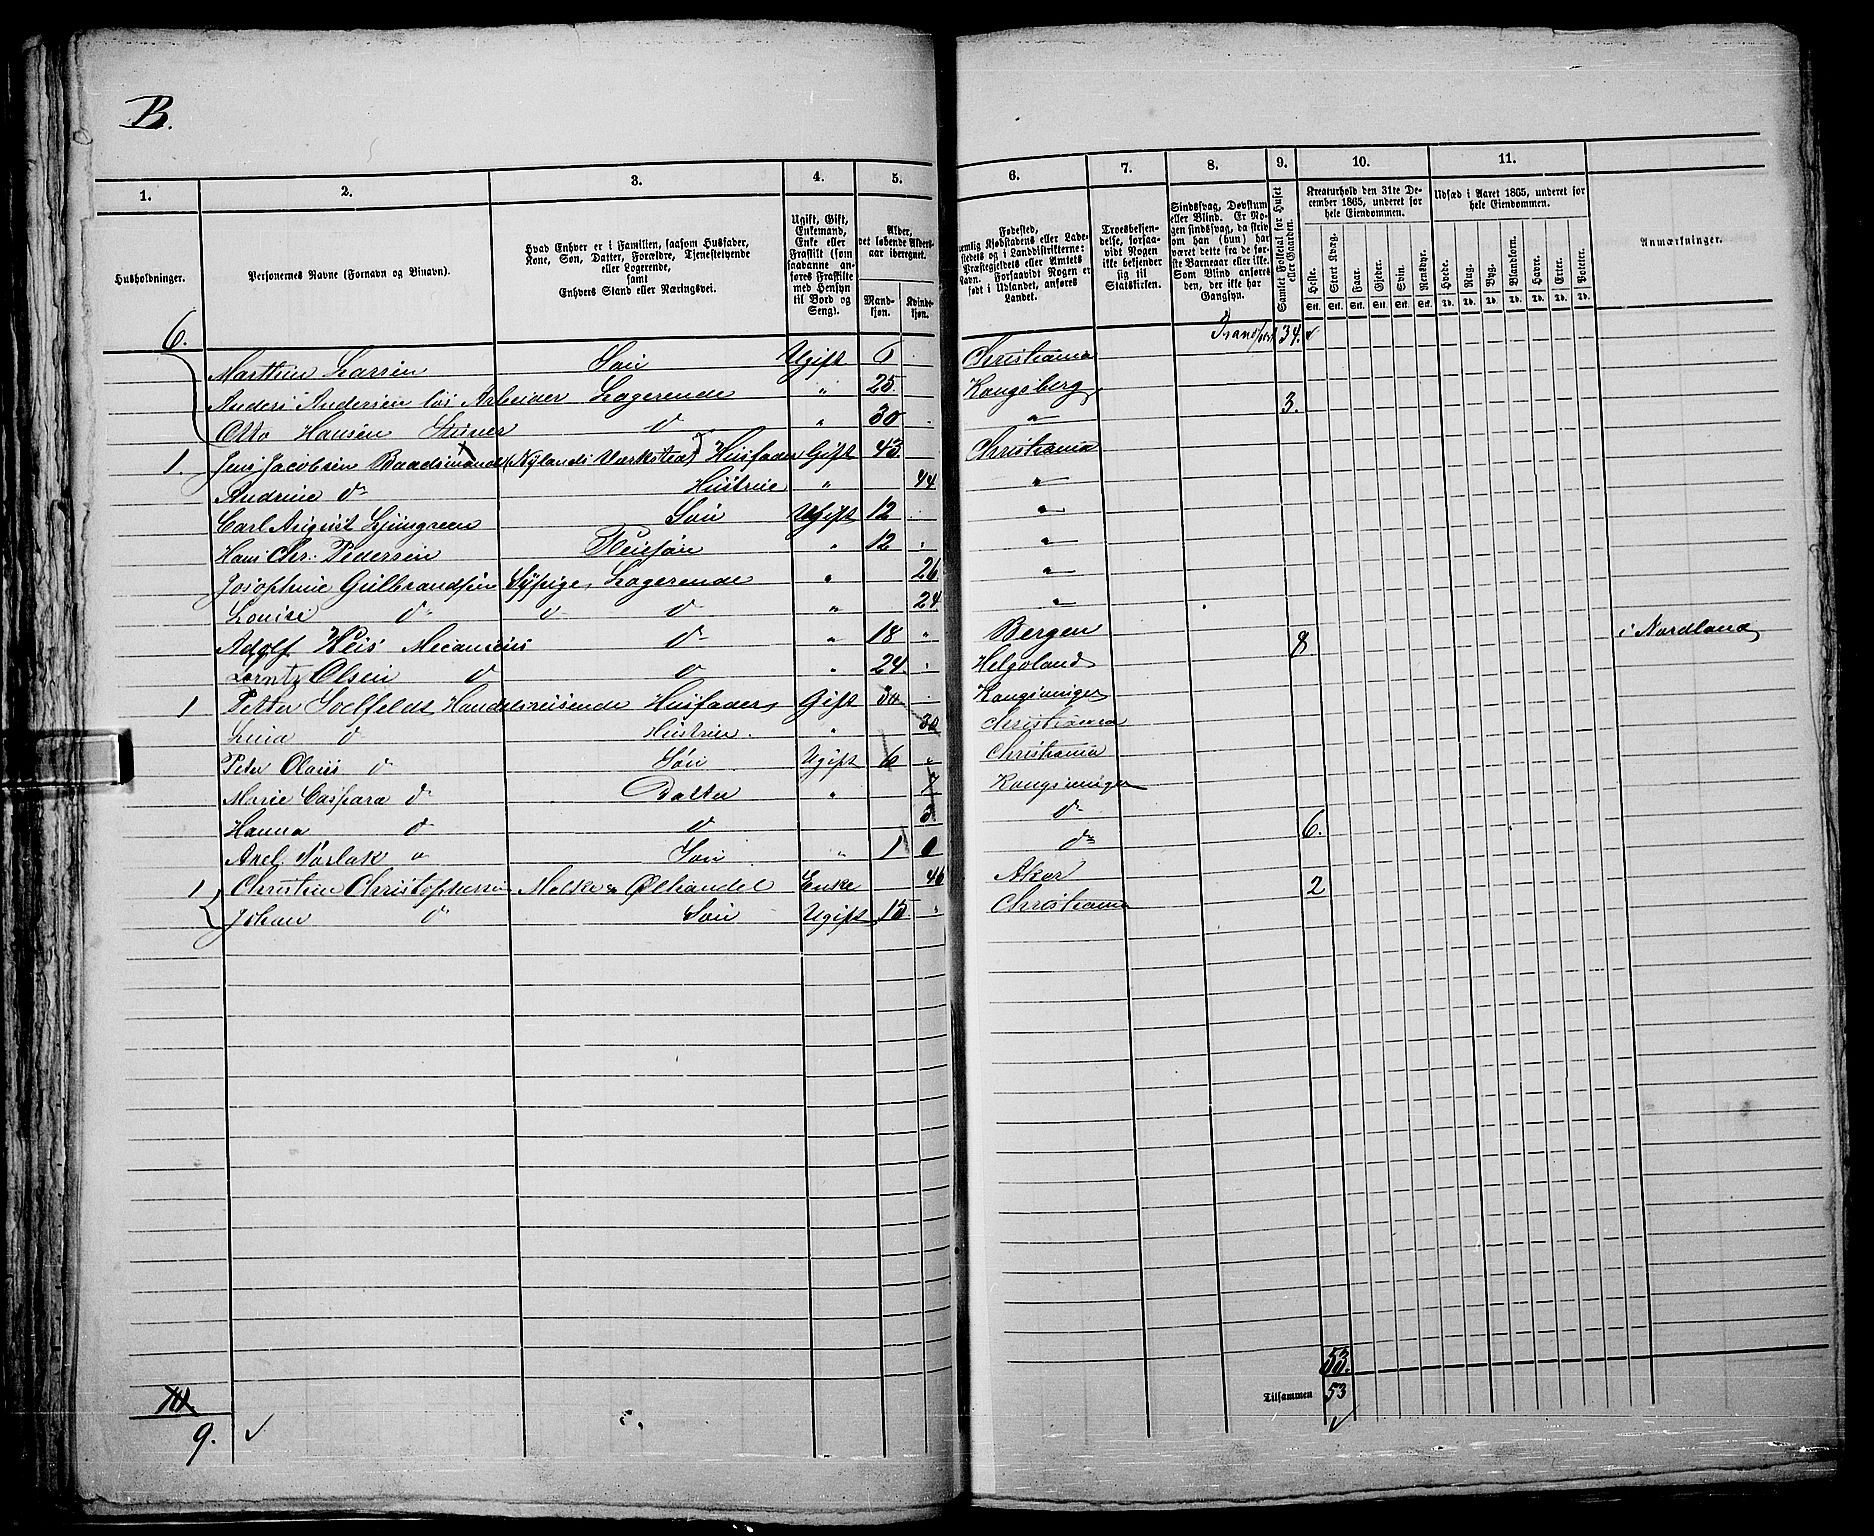 B.
1. 2. 3. 4. 5. 6. 7. 8. 9. 10. 11.
Husholdninger.
Personernes Navne (Fornavn og Binavn).
Hvad Enhver er i Familien, saasom Husfader,
Kone, Søn, Datter, Forældre, Tjenestetyende
eller Logerende,
samt
Enhvers Stand eller Næringsvei.
Ugift, Gift,
Enkemand,
Enke eller
Fraskilt (som
saadanne an-
føres Fraskilte
med Hensyn
til Bord og
Seng).
Alder,
det løbende Alders-
aar iberegnet.
Mand-
kjøn.
Kvinde-
kjøn.
Fødested,
nemlig Kjøbstadens eller Lade-
stedets og i Landdistrikterne:
Præstegjeldets eller Amtets
Navn. Forsaavidt Nogen er
født i Udlandet, anføres
Landet.
Troesbekjen-
delse, forsaa-
vidt Nogen
ikke bekjender
sig til
Statskirken.
Sindssvag, Døvstum
eller Blind. Er No-
gen sindssvag, da skriv
om han (hun) har
været dette fra de før-
ste Barneaar eller ikke.
Som Blind anføres
den, der ikke har
Gangsyn.
Samlet Folketal for Huset
eller Gaarden.
Kreaturhold den 31te De-
cember 1865, underet for
hele Eiendommen.
Heste. Stort Kvæg. Faar. Gjeder. Svin. Rensdyr.
Stk. Stk. Stk. Stk. Stk. Stk.
Udsæd i Aaret 1865, underet for
hele Eiendommen.
Hvede. Rug. Byg. Blandkorn. Havre. Erter. Poteter.
Td. Td. Td. Td. Td. Td. Td.
Anmærkninger.
6. 34. ✓
Marthin Larsen Søn Ugift 6 Christiania
Anders Andersen løs Arbeider Logerende " 25 Kongsberg 3.
Otto Hansen do " 30 "
1. Jens Jacobsen Baadsmand (Nylands Værksted) Husfader Gift 43 Christiania
Andrine do Hustrue " 44 "
Carl August Ljungreen Søn Ugift 12 "
Hans Chr. Pedersen Pleiesøn " 12 "
Josephine Gulbrandsen Sypige, Logerende " 26 "
Louise do do do " 24 "
Adolf Heis Mecanicus do " 18 " Bergen 8
Lorntz Olsen do do 24 Helgoland i Nordland
1 Petter Soelfeldt Handelsreisende Husfader Gift 34 Kongsvinger
Lina do Hustrue. " 30 Christiania
Peter Olaus do Søn Ugift 6 " Christiania
Marie Caspara do Datter " 7 Kongsvinger
Hanna do do 3 do 6.
Axel do Søn " 1 do
1 Christine Christophersen Melke & Ølhandel Enke 46 Aker 2
Johan do Søn Ugift 15 " Christiania
53.
Tilsammen 53
✓
9. ✓